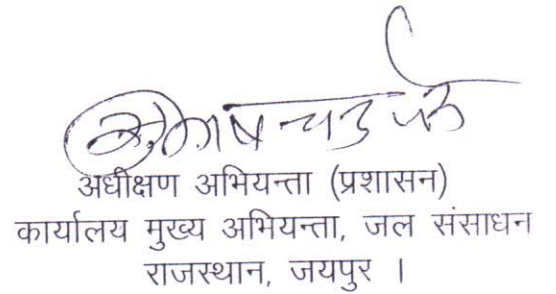 अधीक्षण अभियन्ता (प्रशासन)
कार्यालय मुख्य अभियन्ता, जल संसाधन
राजस्थान, जयपुर ।